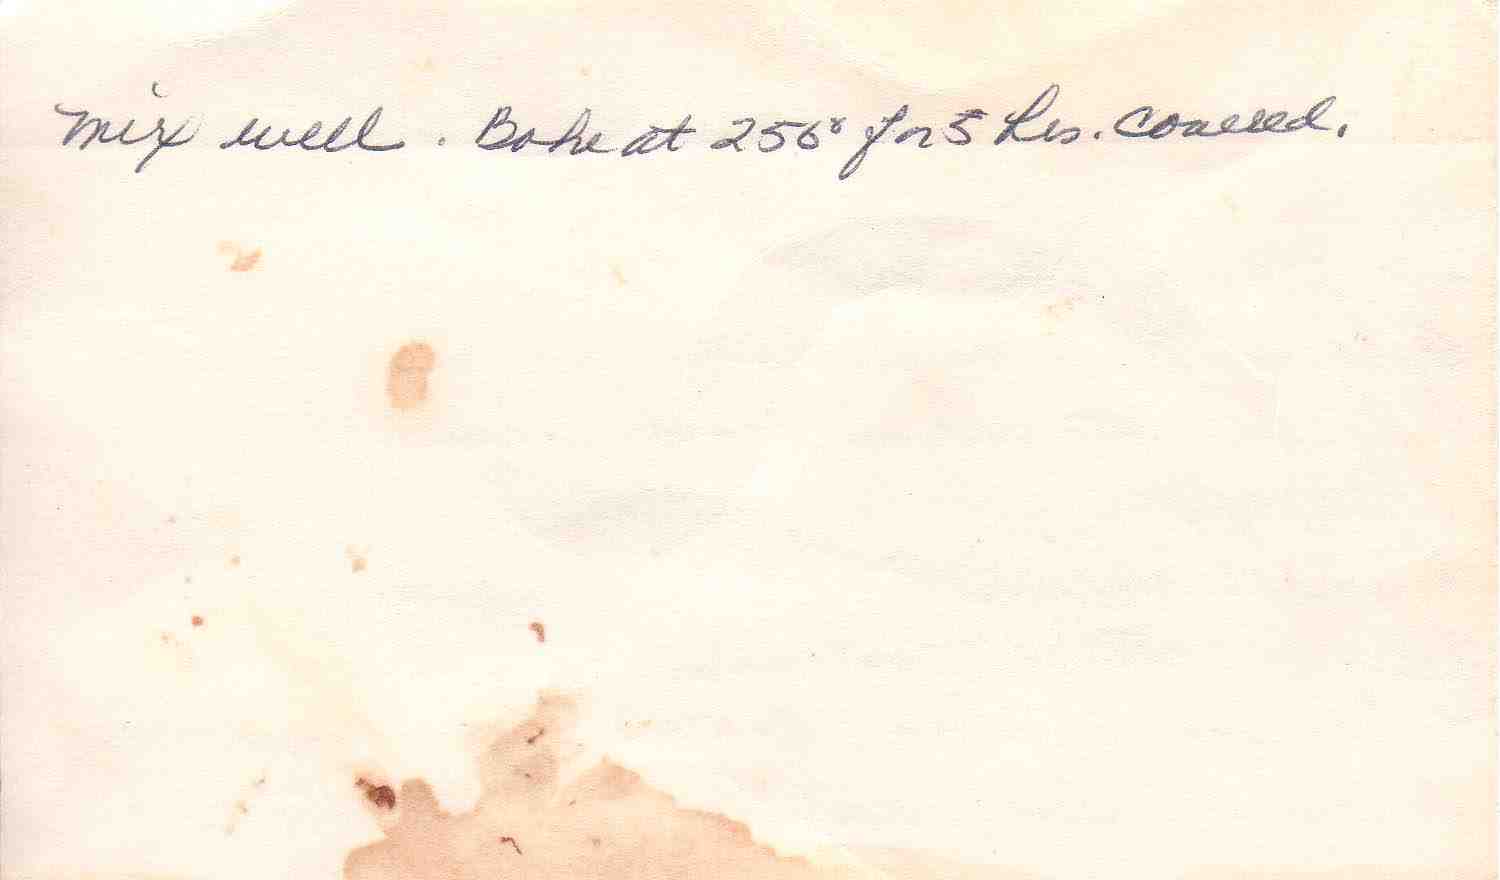 Mix well. Bake at 250° for 5 hrs. covered.